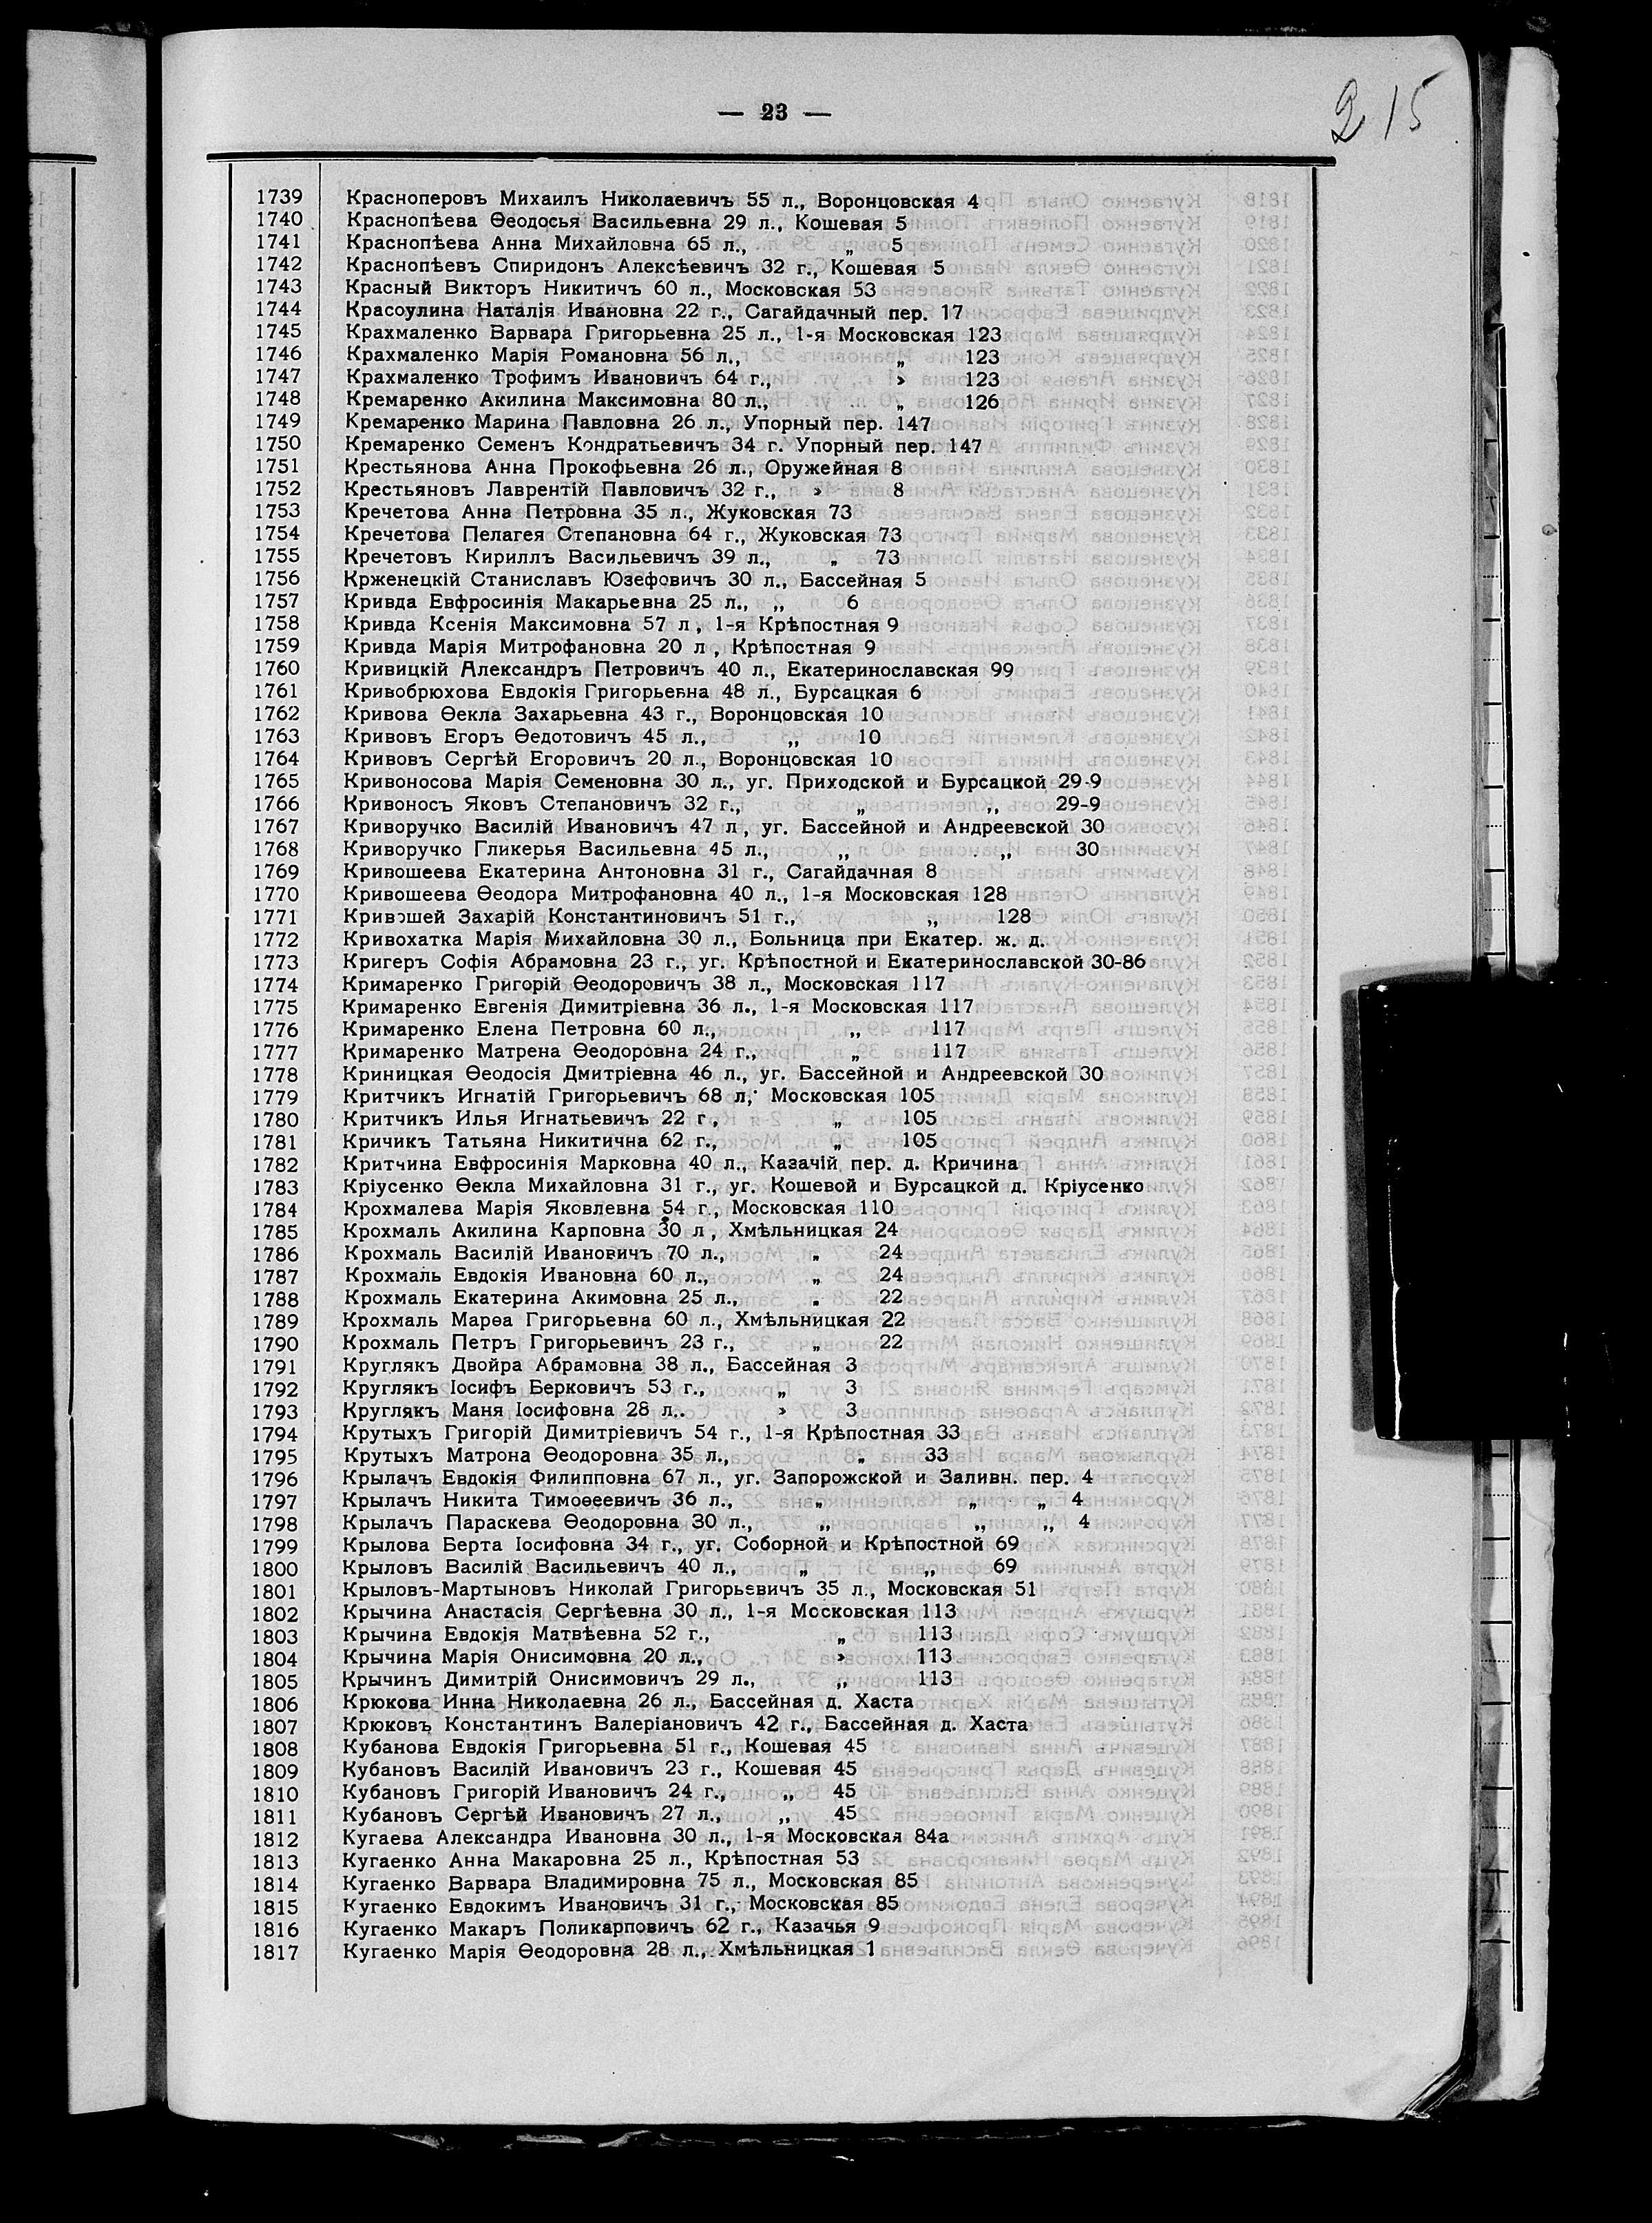 — 23 —
215
1739 Красноперовъ Михаилъ Николаевичъ 55 л., Воронцовская 4
1740 Краснопѣева Ѳеодосья Васильевна 29 л., Кошевая 5
1741 Краснопѣева Анна Михайловна 65 л., „ 5
1742 Краснопѣевъ Спиридонъ Алексѣевичъ 32 г., Кошевая 5
1743 Красный Викторъ Никитичъ 60 л., Московская 53
1744 Красоулина Наталія Ивановна 22 г., Сагайдачный пер. 17
1745 Крахмаленко Варвара Григорьевна 25 л., 1-я Московская 123
1746 Крахмаленко Марія Романовна 56 л., „ 123
1747 Крахмаленко Трофимъ Ивановичъ 64 г., » 123
1748 Кремаренко Акилина Максимовна 80 л., „ 126
1749 Кремаренко Марина Павловна 26 л., Упорный пер. 147
1750 Кремаренко Семенъ Кондратьевичъ 34 г. Упорный пер. 147
1751 Крестьянова Анна Прокофьевна 26 л., Оружейная 8
1752 Крестьяновъ Лаврентій Павловичъ 32 г., » 8
1753 Кречетова Анна Петровна 35 л., Жуковская 73
1754 Кречетова Пелагея Степановна 64 г., Жуковская 73
1755 Кречетовъ Кириллъ Васильевичъ 39 л., „ 73
1756 Крженецкій Станиславъ Юзефовичъ 30 л., Бассейная 5
1757 Кривда Евфросинія Макарьевна 25 л., „ 6
1758 Кривда Ксенія Максимовна 57 л , 1-я Крѣпостная 9
1759 Кривда Марія Митрофановна 20 л , Крѣпостная 9
1760 Кривицкій Александръ Петровичъ 40 л., Екатеринославская 99
1761 Кривобрюхова Евдокія Григорьевна 48 л., Бурсацкая 6
1762 Кривова Ѳекла Захарьевна 43 г., Воронцовская 10
1763 Кривовъ Егоръ Ѳедотовичъ 45 л., „ 10
1764 Кривовъ Сергѣй Егоровичъ 20 л., Воронцовская 10
1765 Кривоносова Марія Семеновна 30 л., уг. Приходской и Бурсацкой 29-9
1766 Кривоносъ Яковъ Степановичъ 32 г., „ „ 29-9
1767 Криворучко Василій Ивановичъ 47 л , уг. Бассейной и Андреевской 30
1768 Криворучко Гликерья Васильевна 45 л., „ „ 30
1769 Кривошеева Екатерина Антоновна 31 г., Сагайдачная 8
1770 Кривошеева Ѳеодора Митрофановна 40 л., 1-я Московская 128
1771 Кривошей Захарій Константиновичъ 51 г., „ 128
1772 Кривохатка Марія Михайловна 30 л., Больница при Екатер. ж. д.
1773 Кригеръ Софія Абрамовна 23 г., уг. Крѣпостной и Екатеринославской 30-86
1774 Кримаренко Григорій Ѳеодоровичъ 38 л., Московская 117
1775 Кримаренко Евгенія Димитріевна 36 л., 1-я Московская 117
1776 Кримаренко Елена Петровна 60 л., „ 117
1777 Кримаренко Матрена Ѳеодоровна 24 г., „ 117
1778 Криницкая Ѳеодосія Дмитріевна 46 л., уг. Бассейной и Андреевской 30
1779 Критчикъ Игнатій Григорьевичъ 68 л, Московская 105
1780 Критчикъ Илья Игнатьевичъ 22 г , „ 105
1781 Кричикъ Татьяна Никитична 62 г., „ 105
1782 Критчина Евфросинія Марковна 40 л., Казачій пер. д. Кричина
1783 Кріусенко Ѳекла Михайловна 31 г., уг. Кошевой и Бурсацкой д. Кріусенко
1784 Крохмалева Марія Яковлевна 54 г., Московская 110
1785 Крохмаль Акилина Карповна 30 л , Хмѣльницкая 24
1786 Крохмаль Василій Ивановичъ 70 л., „ 24
1787 Крохмаль Евдокія Ивановна 60 л., „ 24
1788 Крохмаль Екатерина Акимовна 25 л., „ 22
1789 Крохмаль Марѳа Григорьевна 60 л., Хмѣльницкая 22
1790 Крохмаль Петръ Григорьевичъ 23 г., „ 22
1791 Круглякъ Двойра Абрамовна 38 л., Бассейная 3
1792 Круглякъ Іосифъ Берковичъ 53 г., „ 3
1793 Круглякъ Маня Іосифовна 28 л.. » 3
1794 Крутыхъ Григорій Димитріевичъ 54 г., 1-я Крѣпостная 33
1795 Крутыхъ Матрона Ѳеодоровна 35 л., „ 33
1796 Крылачъ Евдокія Филипповна 67 л., уг. Запорожской и Заливн. пер. 4
1797 Крылачъ Никита Тимоѳеевичъ 36 л., „ „ „ 4
1798 Крылачъ Параскева Ѳеодоровна 30 л., „ „ „ 4
1799 Крылова Берта Іосифовна 34 г., уг. Соборной и Крѣпостной 69
1800 Крыловъ Василій Васильевичъ 40 л., „ „ 69
1801 Крыловъ-Мартыновъ Николай Григорьевичъ 35 л., Московская 51
1802 Крычина Анастасія Сергѣевна 30 л., 1-я Московская 113
1803 Крычина Евдокія Матвѣевна 52 г., „ 113
1804 Крычина Марія Онисимовна 20 л., » 113
1805 Крычинъ Димитрій Онисимовичъ 29 л., „ 113
1806 Крюкова Инна Николаевна 26 л., Бассейная д. Хаста
1807 Крюковъ Константинъ Валеріановичъ 42 г., Бассейная д. Хаста
1808 Кубанова Евдокія Григорьевна 51 г., Кошевая 45
1809 Кубановъ Василій Ивановичъ 23 г., Кошевая 45
1810 Кубановъ Григорій Ивановичъ 24 г., „ 45
1811 Кубановъ Сергѣй Ивановичъ 27 л., „ 45
1812 Кугаева Александра Ивановна 30 л., 1-я Московская 84а
1813 Кугаенко Анна Макаровна 25 л., Крѣпостная 53
1814 Кугаенко Варвара Владимировна 75 л., Московская 85
1815 Кугаенко Евдокимъ Ивановичъ 31 г., Московская 85
1816 Кугаенко Макаръ Поликарповичъ 62 г., Казачья 9
1817 Кугаенко Марія Ѳеодоровна 28 л., Хмѣльницкая 1